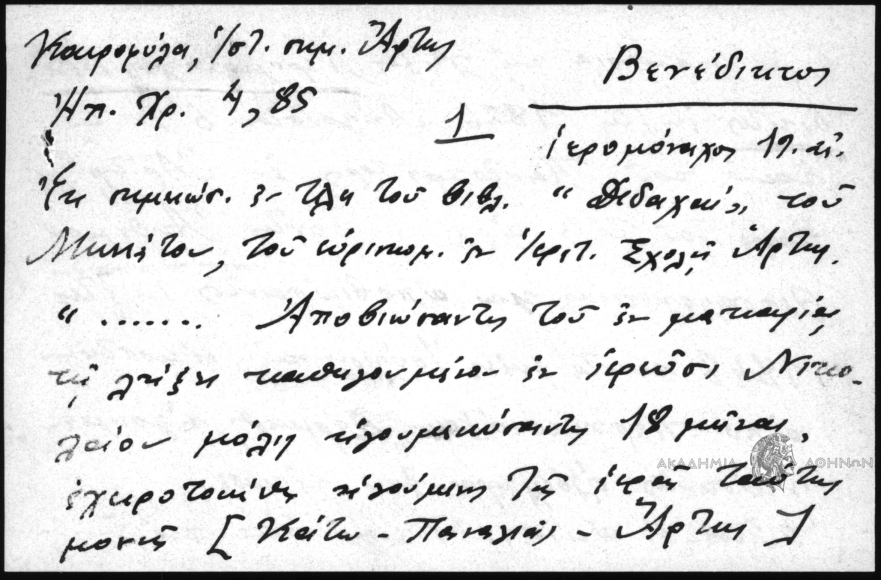 Βενέδικτος
Ἠπ. Χρ. 4, 85
1
ἱερομόναχος 19. αἰ.
Ἐκ σημειώσ. ἐν τέλει τοῦ βιβλ. "Διδαχαί", τοῦ
Μηνιάτου, τοῦ εὑρισκομ. ἐν Ἱερατ. Σχολῇ Ἄρτης.
" ....... Ἀποβιώσαντος τοῦ ἐν μακαρίᾳ
τῇ λήξει καθηγουμένου ἐν ἱερεῦσι Νικο-
λάου μόλις ἡγουμενεύσαντος 18 μῆνας,
ἐχειροτονήθη ἡγούμενος τῆς ἱερᾶς ταύτης
μονῆς [Κάτω - Παναγιᾶς - Ἄρτης]
ΑΚΑΔΗΜΙΑ ΑΘΗΝΩΝ